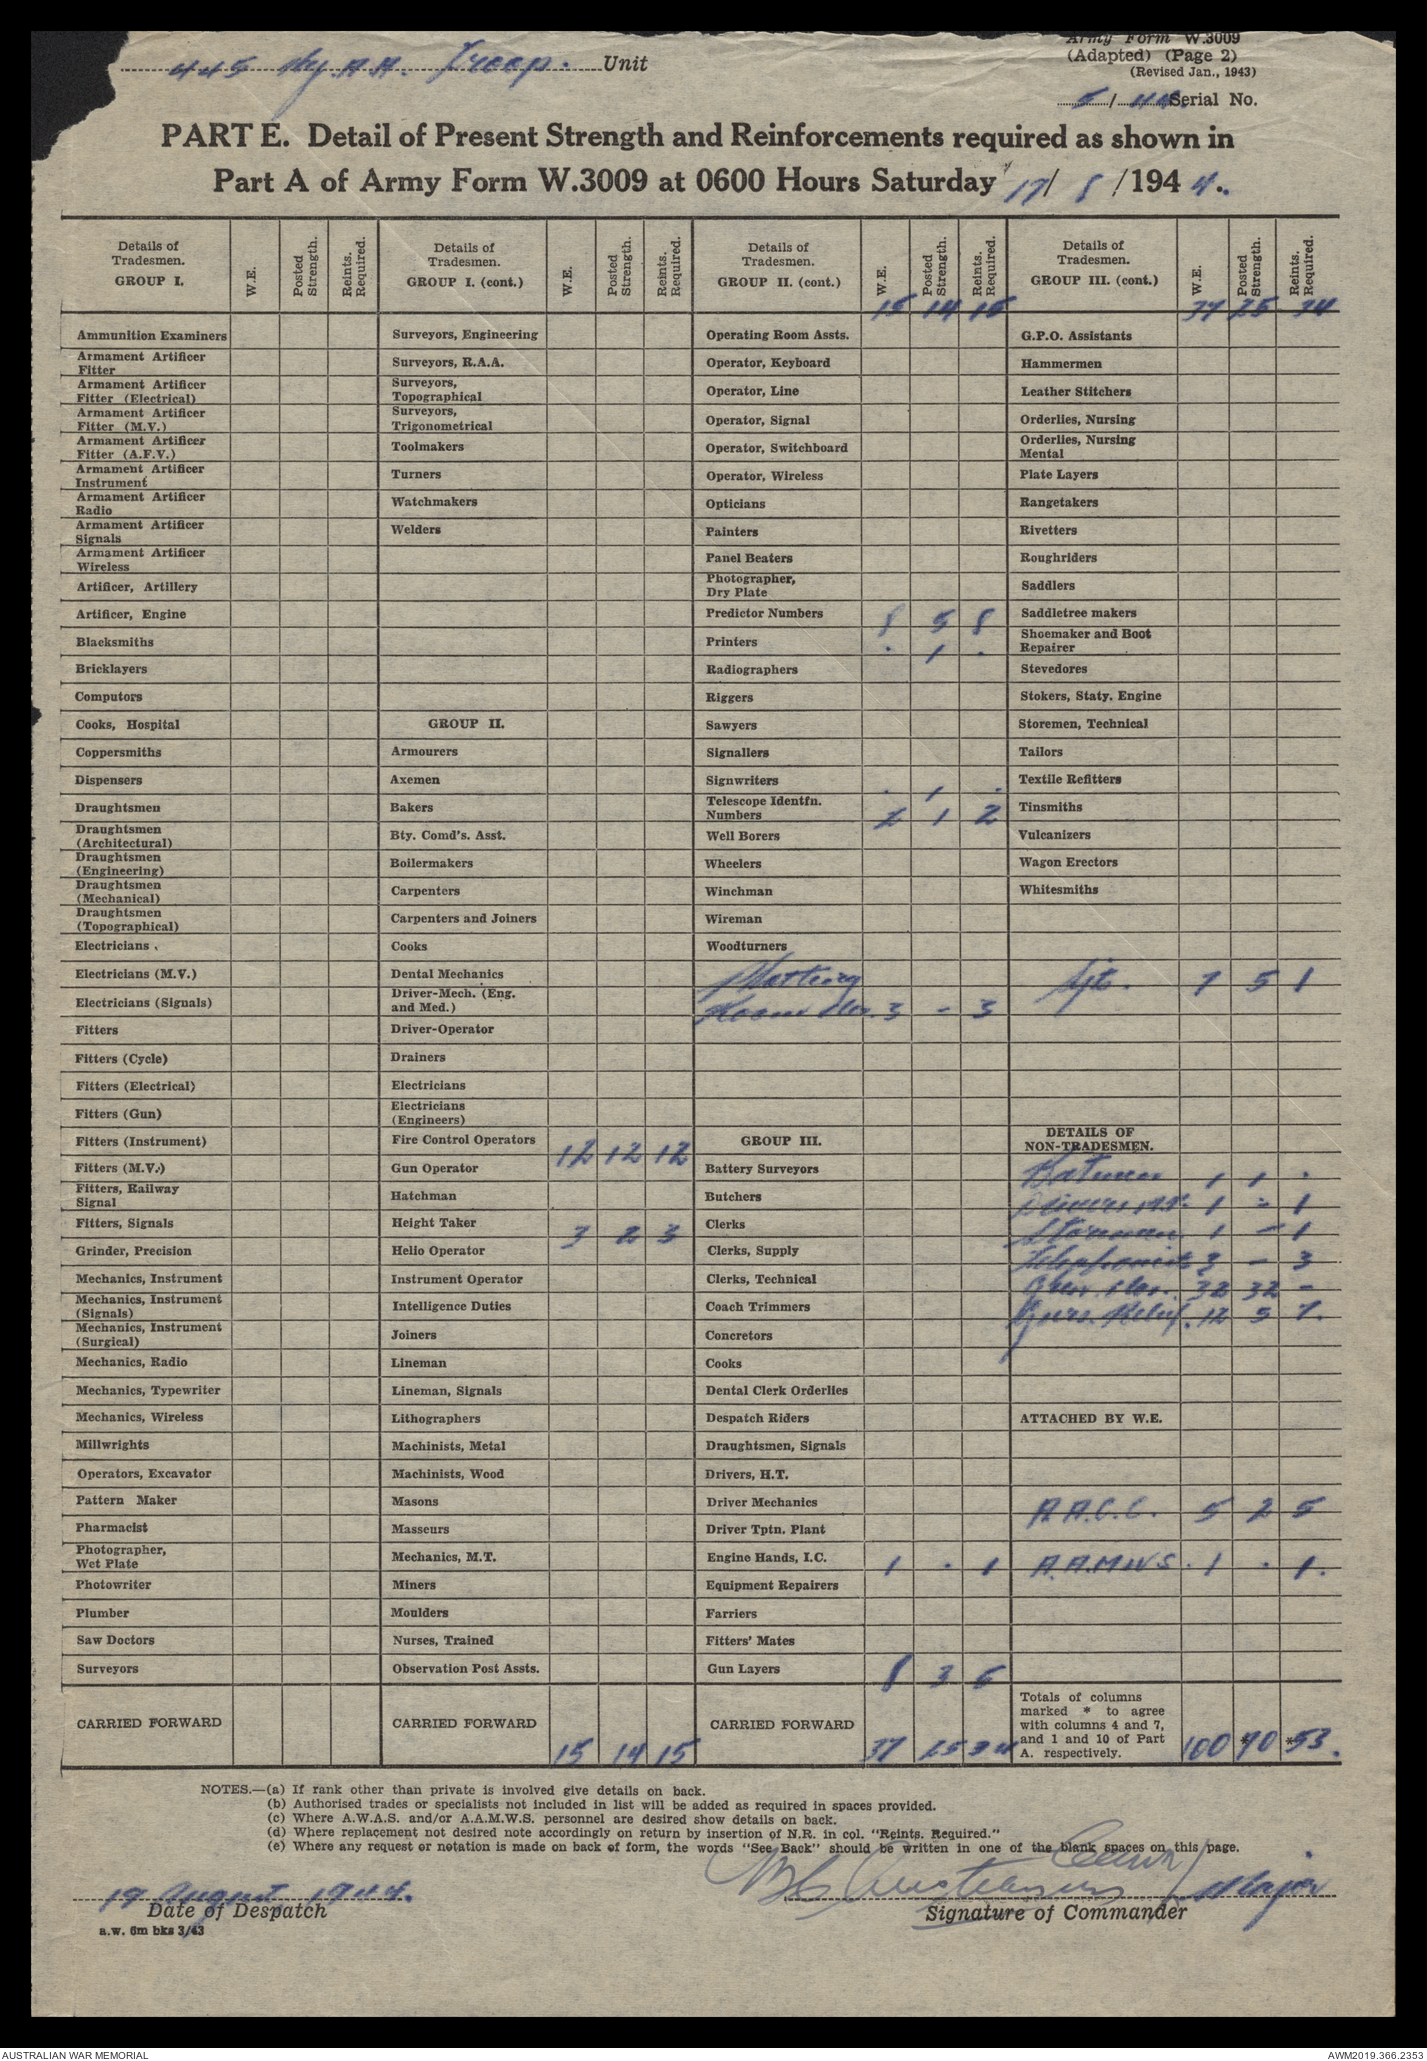 445 Hy. A.A. Troop. Unit
Army Form W.3009
(Adapted) (Page 2)
(Revised Jan., 1943)
5/44 Serial No.
PART E. Detail of Present Strength and Reinforcements required as shown in
Part A of Army Form W.3009 at 0600 Hours Saturday / /194 4.
Details of Tradesmen. GROUP I. W.E. Posted Strength. Reints. Required.
Ammunition Examiners
Armament Artificer Fitter
Armament Artificer Fitter (Electrical)
Armament Artificer Fitter (M.V.)
Armament Artificer Fitter (A.F.V.)
Armament Artificer Instrument
Armament Artificer Radio
Armament Artificer Signals
Armament Artificer Wireless
Artificer, Artillery
Artificer, Engine
Blacksmiths
Bricklayers
Computors
Cooks, Hospital
Coppersmiths
Dispensers
Draughtsmen
Draughtsmen (Architectural)
Draughtsmen (Engineering)
Draughtsmen (Mechanical)
Draughtsmen (Topographical)
Electricians
Electricians (M.V.)
Electricians (Signals)
Fitters
Fitters (Cycle)
Fitters (Electrical)
Fitters (Gun)
Fitters (Instrument)
Fitters (M.V.)
Fitters, Railway Signal
Fitters, Signals
Grinder, Precision
Mechanics, Instrument
Mechanics, Instrument (Signals)
Mechanics, Instrument (Surgical)
Mechanics, Radio
Mechanics, Typewriter
Mechanics, Wireless
Millwrights
Operators, Excavator
Pattern Maker
Pharmacist
Photographer, Wet Plate
Photowriter
Plumber
Saw Doctors
Surveyors
CARRIED FORWARD
Details of Tradesmen. GROUP I. (cont.) W.E. Posted Strength. Reints. Required.
Surveyors, Engineering
Surveyors, R.A.A.
Surveyors, Topographical
Surveyors, Trigonometrical
Toolmakers
Turners
Watchmakers
Welders
GROUP II.
Armourers
Axemen
Bakers
Bty. Comd's. Asst.
Boilermakers
Carpenters
Carpenters and Joiners
Cooks
Dental Mechanics
Driver-Mech. (Eng. and Med.)
Driver-Operator
Drainers
Electricians
Electricians (Engineers)
Fire Control Operators 12 12 12
Gun Operator
Hatchman
Height Taker 3 2 3
Helio Operator
Instrument Operator
Intelligence Duties
Joiners
Lineman
Lineman, Signals
Lithographers
Machinists, Metal
Machinists, Wood
Masons
Masseurs
Mechanics, M.T.
Miners
Moulders
Nurses, Trained
Observation Post Assts.
CARRIED FORWARD 15 14 15
Details of Tradesmen. GROUP II. (cont.) W.E. Posted Strength. Reints. Required.
15 14 15
Operating Room Assts.
Operator, Keyboard
Operator, Line
Operator, Signal
Operator, Switchboard
Operator, Wireless
Opticians
Painters
Panel Beaters
Photographer, Dry Plate
Predictor Numbers 8 5 8
Printers . 1 .
Radiographers
Riggers
Sawyers
Signallers
Signwriters . 1 .
Telescope Identfn. Numbers 2 1 2
Well Borers
Wheelers
Winchman
Wireman
Woodturners
Plotting
Room 3 - 3
GROUP III.
Battery Surveyors
Butchers
Clerks
Clerks, Supply
Clerks, Technical
Coach Trimmers
Concretors
Cooks
Dental Clerk Orderlies
Despatch Riders
Draughtsmen, Signals
Drivers, H.T.
Driver Mechanics
Driver Tptn. Plant
Engine Hands, I.C. 1 . 1
Equipment Repairers
Farriers
Fitters' Mates
Gun Layers 8 3 6
CARRIED FORWARD 37 25 34
Details of Tradesmen. GROUP III. (cont.) W.E. Posted Strength. Reints. Required.
37 25 34
G.P.O. Assistants
Hammermen
Leather Stitchers
Orderlies, Nursing
Orderlies, Nursing Mental
Plate Layers
Rangetakers
Rivetters
Roughriders
Saddlers
Saddletree makers
Shoemaker and Boot Repairer
Stevedores
Stokers, Staty. Engine
Storemen, Technical
Tailors
Textile Refitters
Tinsmiths
Vulcanizers
Wagon Erectors
Whitesmiths
Sjt. 7 5 1
DETAILS OF NON-TRADESMEN.
Batmen 1 1 .
Drivers M.T. 1 - 1
Storeman 1 - 1
Telephonists 3 - 3
32 32 -
Guns. Relief. 12 5 7.
ATTACHED BY W.E.
A.A.C.C. 5 2 5
A.A.M.W.S. 1 . 1.
Totals of columns marked * to agree with columns 4 and 7, and 1 and 10 of Part A. respectively. 100 *90 *53.
NOTES.—(a) If rank other than private is involved give details on back.
(b) Authorised trades or specialists not included in list will be added as required in spaces provided.
(c) Where A.W.A.S. and/or A.A.M.W.S. personnel are desired show details on back.
(d) Where replacement not desired note accordingly on return by insertion of N.R. in col. "Reints. Required."
(e) Where any request or notation is made on back of form, the words "See Back" should be written in one of the blank spaces on this page.
19 August 1944.
Date of Despatch
Major
Signature of Commander
a.w. 6m bks 3/43
AUSTRALIAN WAR MEMORIAL
AWM2019.366.2353